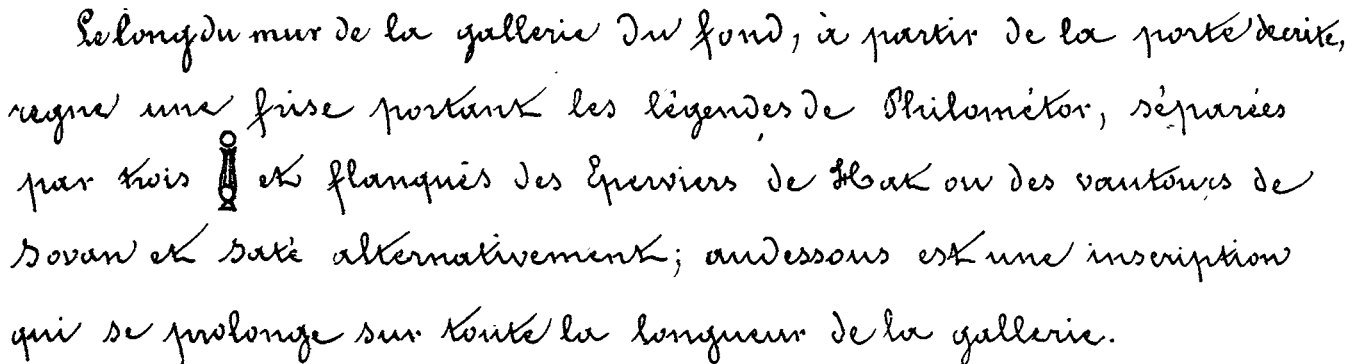 Le long du mur de la gallerie du fond, à partir de la porte décrite,
regne une frise portant les légendes de Philométor, séparées
par trois et flanqués des Eperviers de Hat ou des vautours de
Sovan et Saté alternativement; audessous est une inscription
qui se prolonge sur toute la longueur de la gallerie.